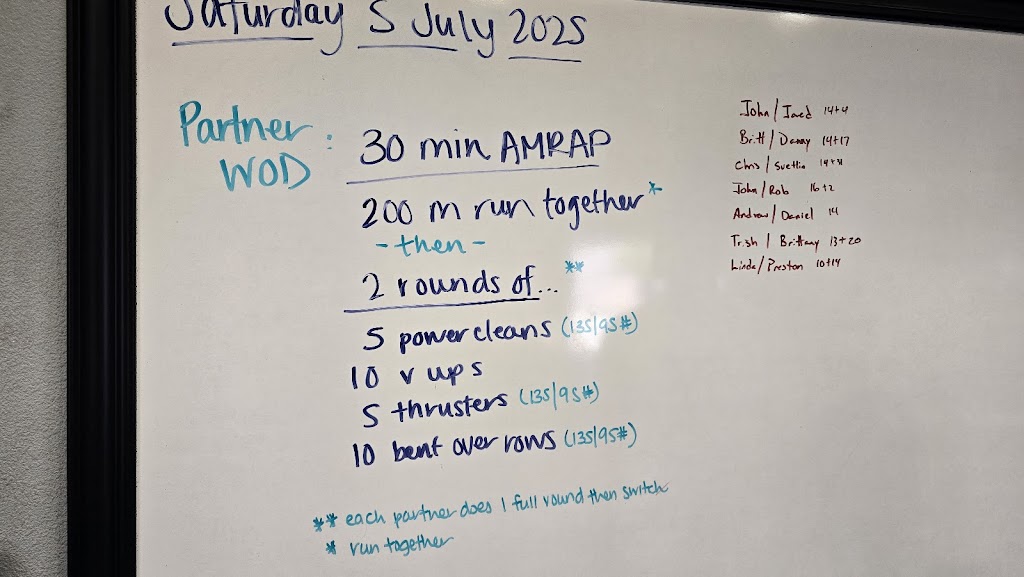 Saturday 5 July 2025
Partner WOD : 30 min AMRAP
200 m run together*
- then -
2 rounds of... **
5 power cleans (135/95#)
10 v ups
5 thrusters (135/95#)
10 bent over rows (135/95#)
** each partner does 1 full round then switch
* run together
John / Jared 14+4
Britt / Danny 14+17
Chris / Svetlia 14+31
John / Rob 16+2
Andrew / Daniel 14
Trish / Brittany 13+20
Linda / Preston 10+14